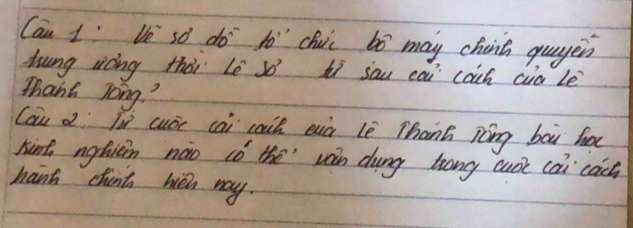 Câu 1: Vẽ sơ đồ tổ chức bộ máy chính quyền
trung ương thời Lê Sơ từ sau cải cách của Lê
Thánh Tông?
Câu 2: Từ cuộc cải cách của Lê Thánh Tông bài học
kinh nghiệm nào có thể vận dụng trong cuộc cải cách
hành chính hiện nay.